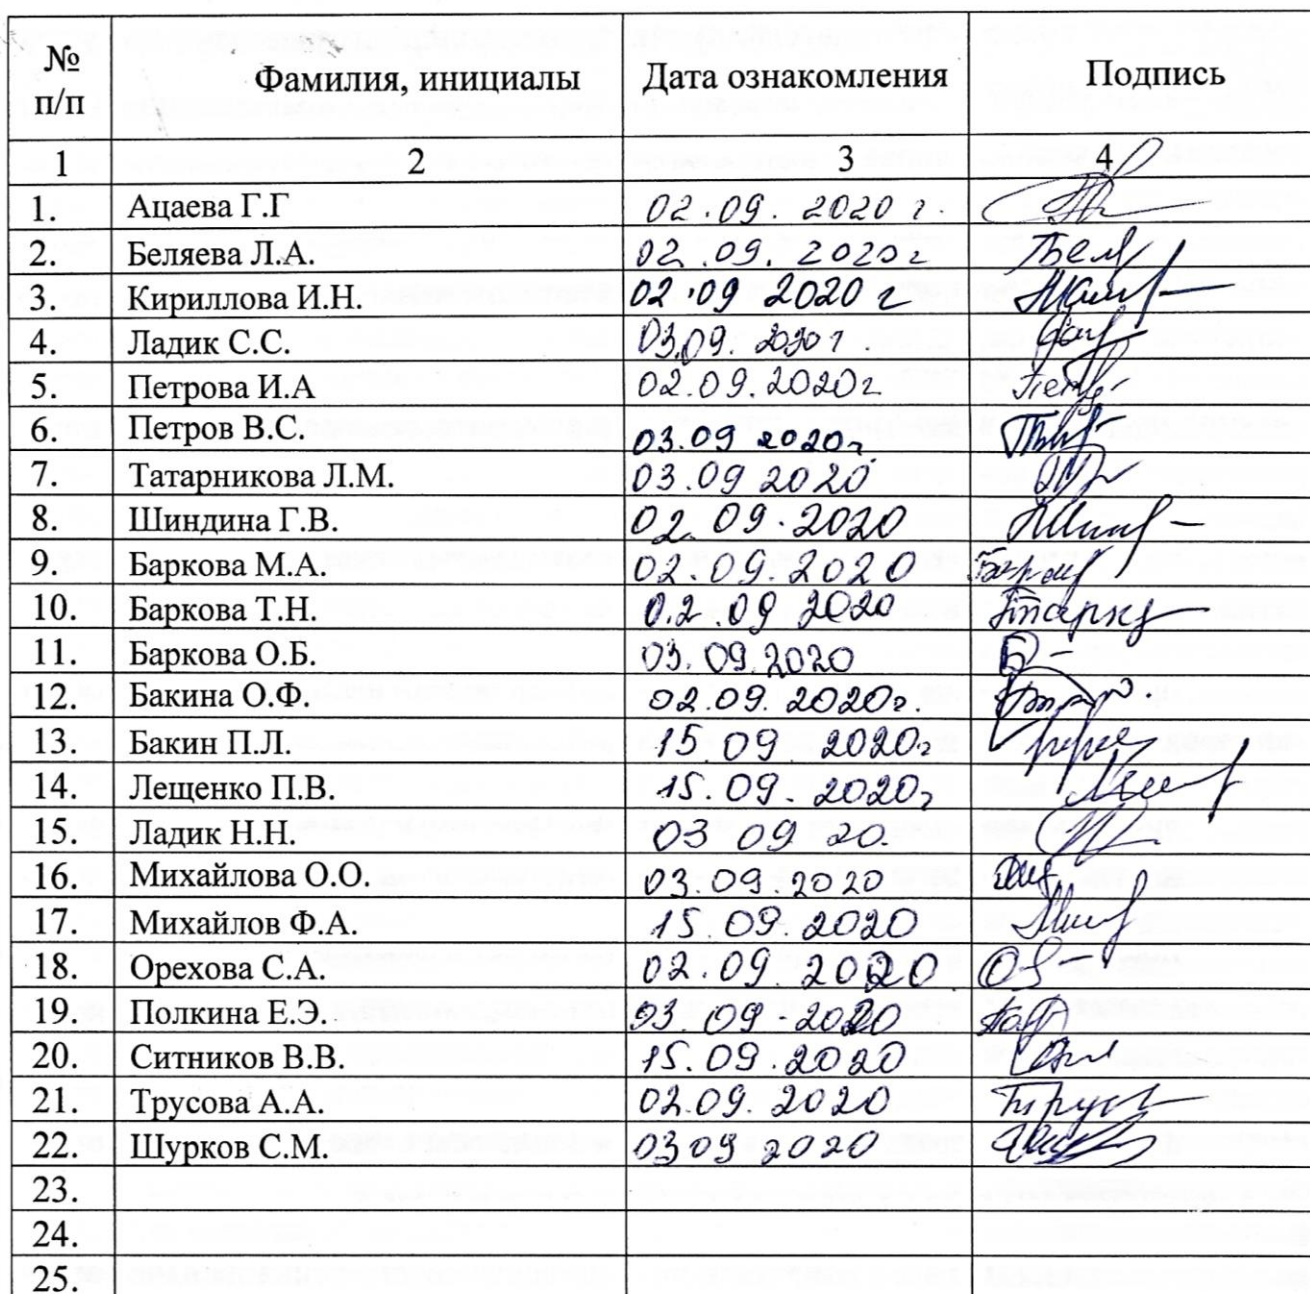 № п/п Фамилия, инициалы Дата ознакомления Подпись
1 2 3 4
1. Ацаева Г.Г 02.09.2020 г.
2. Беляева Л.А. 02.09.2020г
3. Кириллова И.Н. 02.09 2020 г
4. Ладик С.С. 03.09.2020 г.
5. Петрова И.А 02.09.2020г
6. Петров В.С. 03.09 2020г.
7. Татарникова Л.М. 03.09 2020
8. Шиндина Г.В. 02.09.2020
9. Баркова М.А. 02.09.2020
10. Баркова Т.Н. 02.09 2020
11. Баркова О.Б. 03.09.2020
12. Бакина О.Ф. 02.09.2020г.
13. Бакин П.Л. 15.09.2020г
14. Лещенко П.В. 15.09.2020г
15. Ладик Н.Н. 03 09 20.
16. Михайлова О.О. 03.09.2020
17. Михайлов Ф.А. 15.09.2020
18. Орехова С.А. 02.09.2020
19. Полкина Е.Э. 03.09.2020
20. Ситников В.В. 15.09.2020
21. Трусова А.А. 02.09.2020
22. Шурков С.М. 03 09 2020
23.
24.
25.